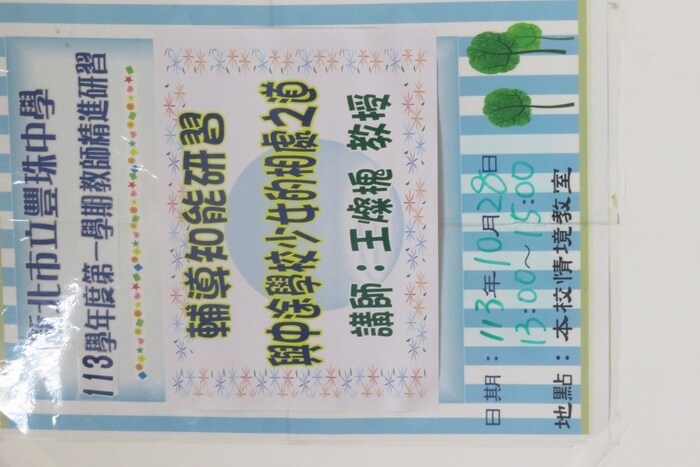 新北市立豐珠中學
113學年度第一學期教師精進研習
輔導知能研習
與中途學校少女的相處之道
講師：王燦槐 教授
日期：113年10月28日
13:00～15:00
地點：本校情境教室